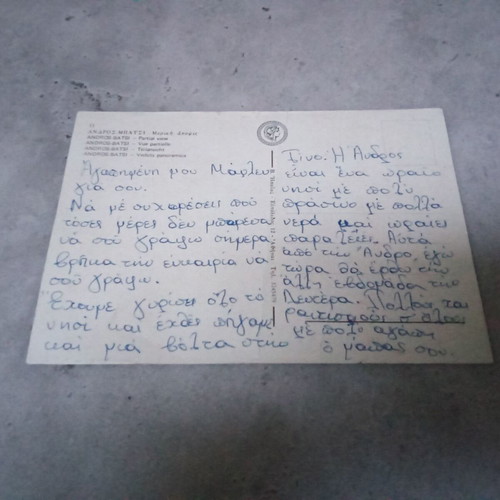 ΑΝΔΡΟΣ-ΜΠΑΤΣΙ - Μερική άποψις
ANDROS-BATSI - Partial view
ANDROS-BATSI - Vue partielle
ANDROS-BATSI - Teilansicht
ANDROS-BATSI - Veduta panoramica
Ἀγαπημένη μου
γιά σου.
Νά μέ συχωρέσεις πού
τόσες μέρες δέν μπόρεσα
νά σοῦ γράψω σήμερα
βρῆκα τήν εὐκαιρία νά
σοῦ γράψω.
Ἔχουμε γυρίσει ὅλο τό
νησί καί ἐχθές πήγαμε
καί μιά βόλτα στήν
Τῖνο. Ἡ Ἄνδρος
εἶναι ἕνα ὡραῖο
νησί μέ πολύ
πράσινο μέ πολλά
νερά καί ὡραῖες
παραλίες. Αὐτά
ἀπό τήν Ἄνδρο ἐγώ
τώρα θά ἔρθω τήν
ἄλλη ἑβδομάδα τήν
Δευτέρα. Πολλούς
χαιρετισμούς σ' ὅλους
μέ πολύ ἀγάπη
ὁ μπαμπάς σου.